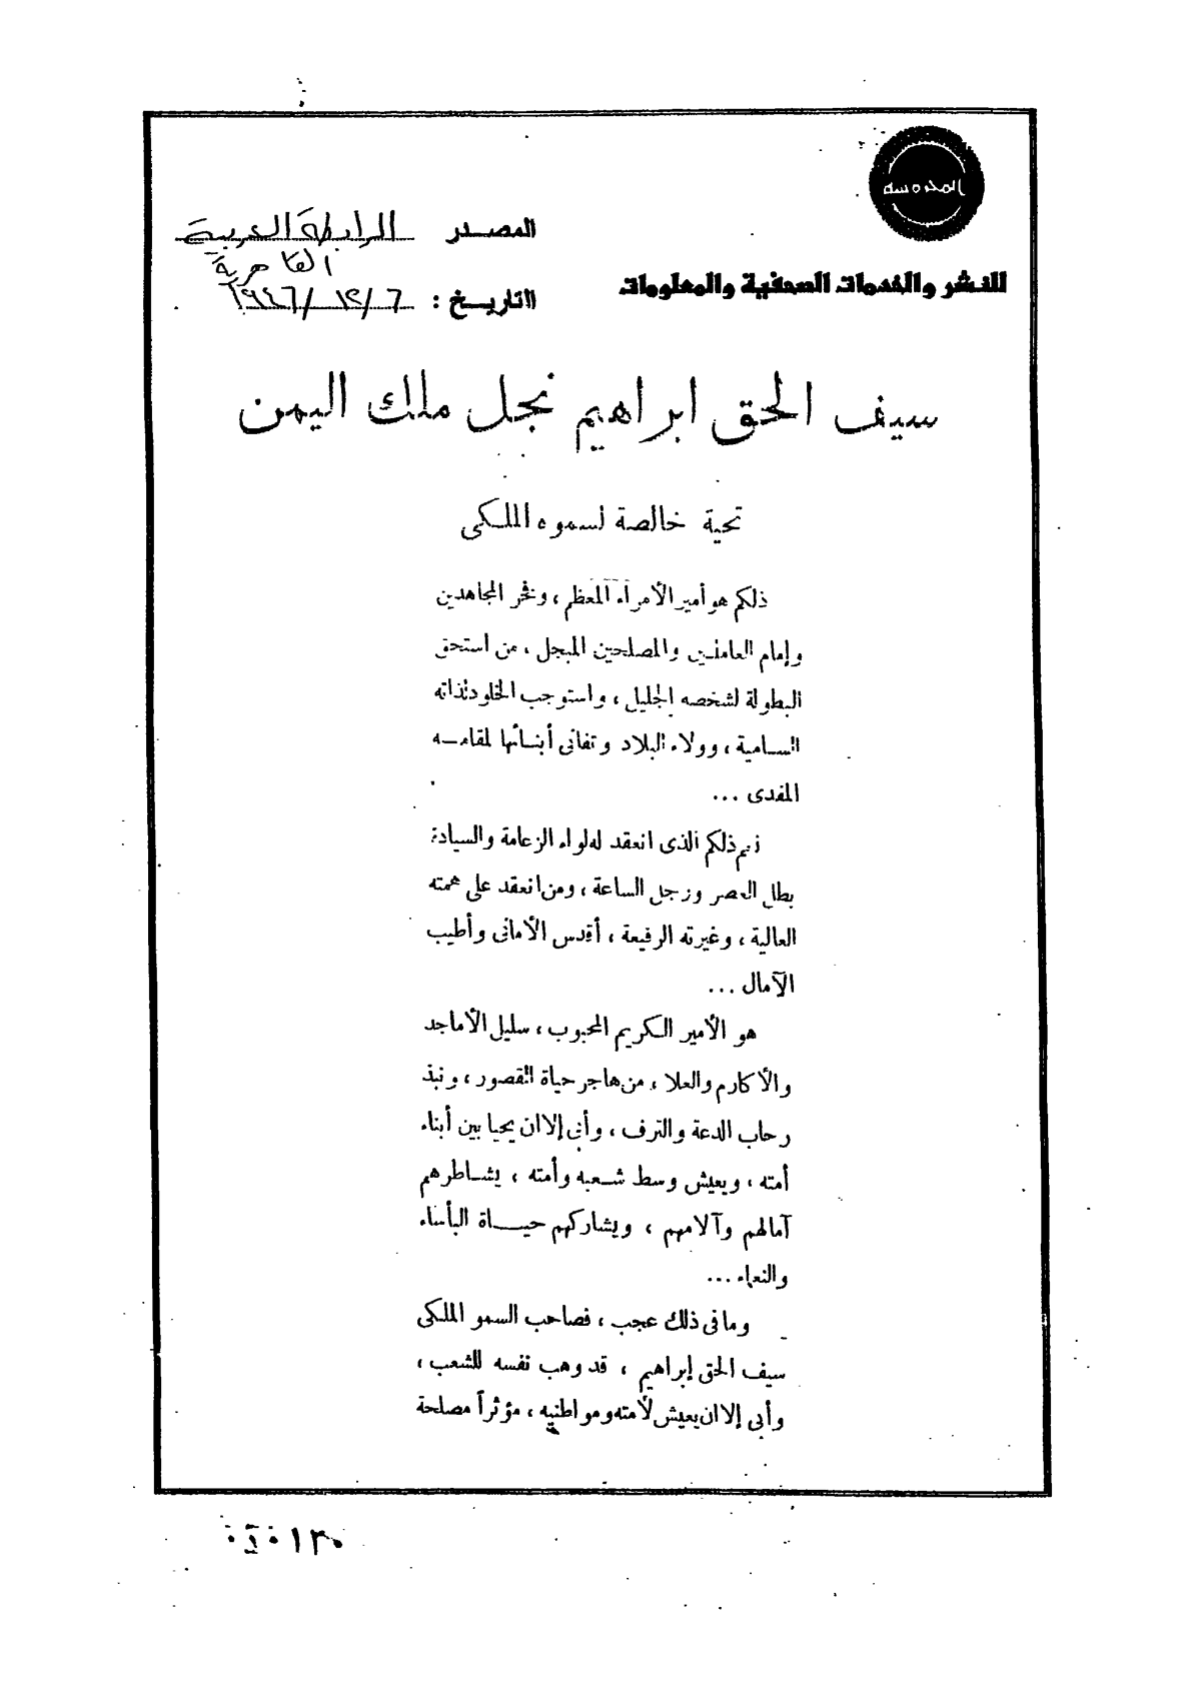 المحروسة
للنشر والخدمات الصحفية والمعلومات
المصدر الرابطة العربية
القاهرية
التاريخ : ٦/١٢/١٩٤٦
سيف الحق ابراهيم نجل ملك اليمن
تحية خالصة لسموه الملكى
ذلكم هو أمير الأمراء المعظم ، وفخر المجاهدين
وإمام العاملين والمصلحين المبجل ، من استحق
البطولة لشخصه الجليل ، واستوجب الخلود لذاته
السامية ، وولاء البلاد وتفانى أبنائها لمقامه
المفدى ...
نعم ذلكم الذى انعقد له لواء الزعامة والسيادة
بطل العصر ورجل الساعة ، ومن انعقد على همته
العالية ، وغيرته الرفيعة ، أقدس الأمانى وأطيب
الآمال ...
هو الأمير الكريم المحبوب ، سليل الأماجد
والأكارم والعلا ، من هاجر حياة القصور ، ونبذ
رحاب الدعة والترف ، وأبى إلا ان يحيا بين أبناء
أمته ، ويعيش وسط شعبه وأمته ، يشاطرهم
آمالهم وآلامهم ، ويشاركهم حياة البأساء
والنعماء ...
وما فى ذلك عجب ، فصاحب السمو الملكى
سيف الحق إبراهيم ، قد وهب نفسه للشعب ،
وأبى إلا ان يعيش لأمته ومواطنيه ، مؤثراً مصلحة